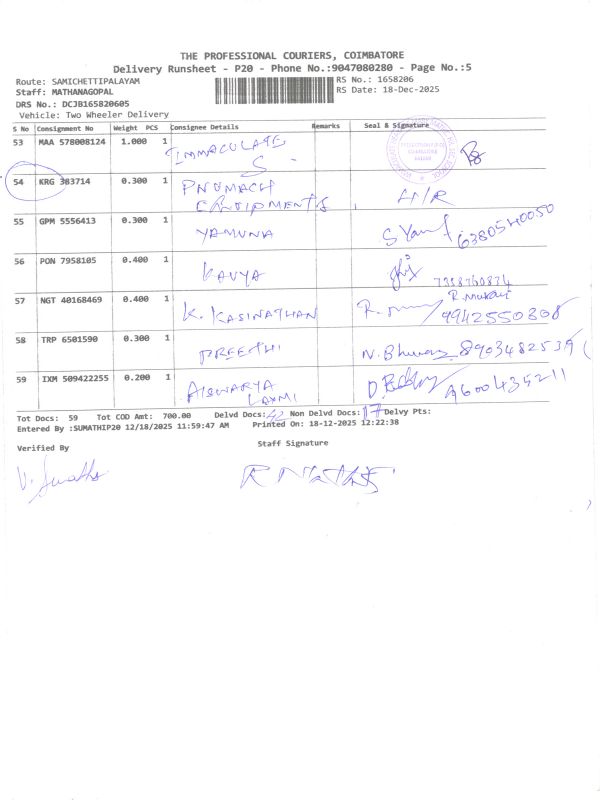 THE PROFESSIONAL COURIERS, COIMBATORE
Delivery Runsheet - P20 - Phone No.:9047080280 - Page No.:5
Route: SAMICHETTIPALAYAM RS No.: 1658206
Staff: MATHANAGOPAL RS Date: 18-Dec-2025
DRS No.: DCJB165820605
Vehicle: Two Wheeler Delivery
S No Consignment No Weight PCS Consignee Details Remarks Seal & Signature
53 MAA 578008124 1.000 1 IMMACULATE
S
54 KRG 383714 0.300 1 PNUMACH
EQUIPMENTS H/R
55 GPM 5556413 0.300 1 YAMUNA 6380540050
56 PON 7958105 0.400 1 KAVYA 7358760834
57 NGT 40168469 0.400 1 K. KASINATHAN 9942550308
58 TRP 6501590 0.300 1 PREETHI 8903482539
59 IXM 509422255 0.200 1 AISWARYA
LAXMI 9600435211
Tot Docs: 59 Tot COD Amt: 700.00 Delvd Docs: 42 Non Delvd Docs: 17 Delvy Pts:
Entered By :SUMATHIP20 12/18/2025 11:59:47 AM Printed On: 18-12-2025 12:22:38
Verified By Staff Signature